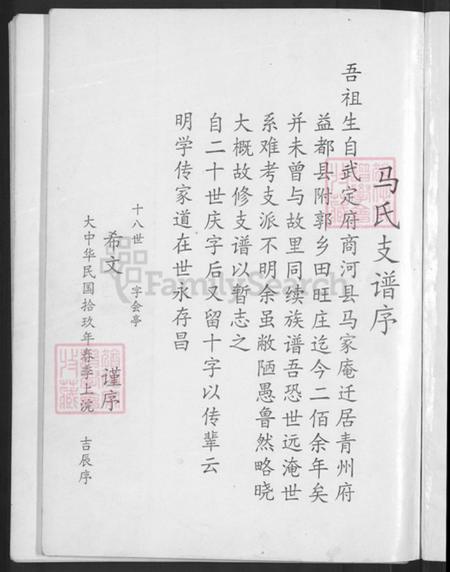 马氏支谱序
吾祖生自武定府商河县马家庵迁居青州府
益都县附郭乡田旺庄迄今二佰余年矣
并未曾与故里同续族谱吾恐世远淹世
系难考支派不明余虽敝陋愚鲁然略晓
大概故修支谱以暂志之
自二十世庆字后又留十字以传辈云
明学传家道在世永存昌
十八世 字会亭
希文 谨序
大中华民国拾玖年春季上浣 吉辰序
FamilySearch